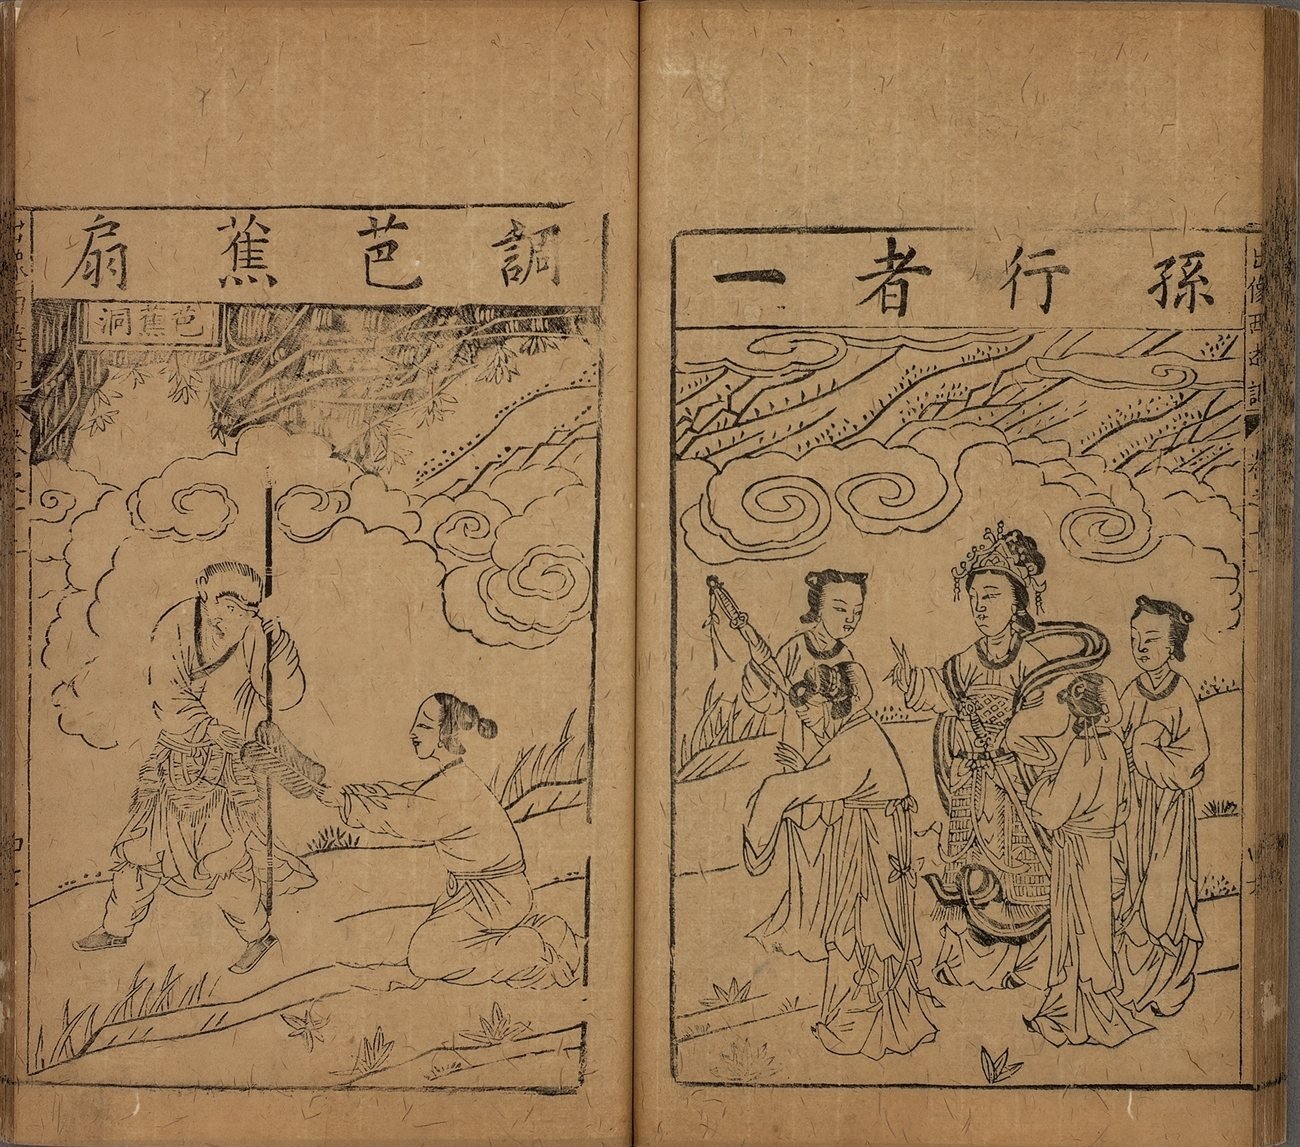 孫行者一
調芭蕉扇
芭蕉洞
出像西遊記